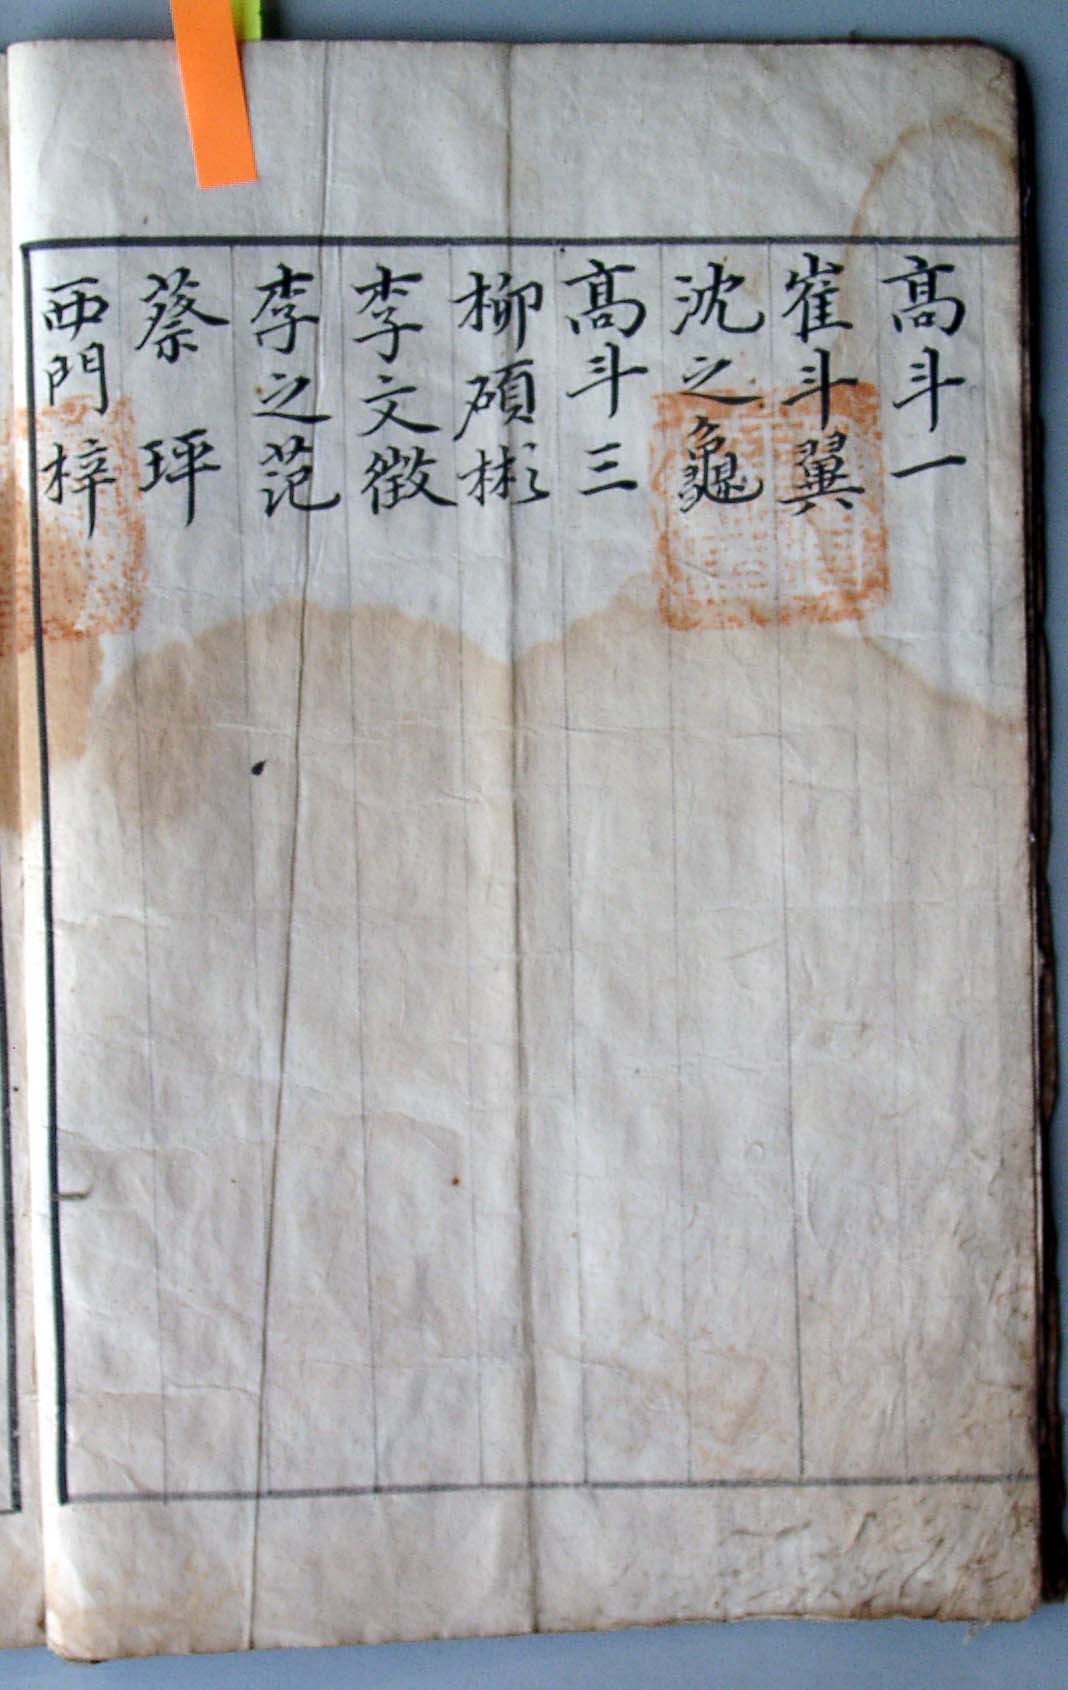 髙斗一
崔斗翼
沈之龜
髙斗三
柳碩彬
李文徵
李之范
蔡坪
西門梓